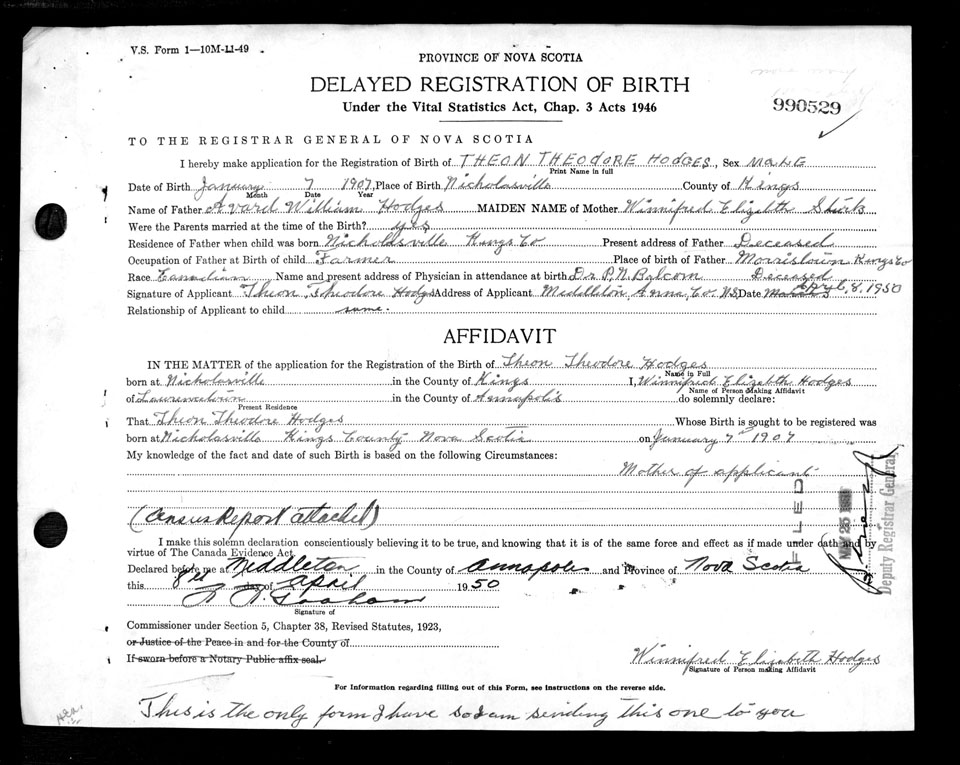 V.S. Form 1—10M-11-49
PROVINCE OF NOVA SCOTIA
DELAYED REGISTRATION OF BIRTH
Under the Vital Statistics Act, Chap. 3 Acts 1946
990529
TO THE REGISTRAR GENERAL OF NOVA SCOTIA
I hereby make application for the Registration of Birth of THEON THEODORE HODGES, Sex MALE
Print Name in full
Date of Birth January 7 1907, Place of Birth Nicholsville County of Kings
Month Date Year
Name of Father Avard William Hodges MAIDEN NAME of Mother Winnifred Elizebth
Were the Parents married at the time of the Birth? yes
Residence of Father when child was born Nicholsville Kings Co Present address of Father Deceased
Occupation of Father at Birth of child Farmer Place of birth of Father Morristown Kings Co
Race Canadian Name and present address of Physician in attendance at birth Dr P.N. Balcom Deceased
Signature of Applicant Theon Theodore Hodges Address of Applicant Middleton Anna. Co. N.S. Date April 8, 1950
Relationship of Applicant to child same.
AFFIDAVIT
IN THE MATTER of the application for the Registration of the Birth of Theon Theodore Hodges
Name in Full
born at Nicholsville in the County of Kings I, Winnifred Elizebth Hodges
Name of Person Making Affidavit
of Lawrencetown in the County of Annapolis do solemnly declare:
Present Residence
That Theon Theodore Hodges Whose Birth is sought to be registered was
born at Nicholsville Kings County Nova Scotia on January 7th 1907
My knowledge of the fact and date of such Birth is based on the following Circumstances:
Mother of applicant
(Census Report attached)
I make this solemn declaration conscientiously believing it to be true, and knowing that it is of the same force and effect as if made under oath and by
virtue of The Canada Evidence Act
Declared before me at Middleton, in the County of Annapolis and Province of Nova Scotia
this 8th day of April 1950
Signature of
Commissioner under Section 5, Chapter 38, Revised Statutes, 1923,
or Justice of the Peace in and for the County of
If sworn before a Notary Public affix seal.
Winnifred Elizabeth Hodges
Signature of Person making Affidavit
FILED
MAY 25
Deputy Registrar General
For Information regarding filling out of this Form, see instructions on the reverse side.
This is the only form I have so I am sending this one to you